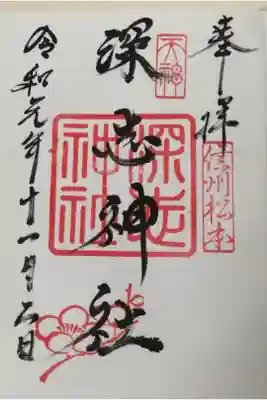 奉拝
信州松本
天神
深志神社
深志神社
令和元年十一月六日